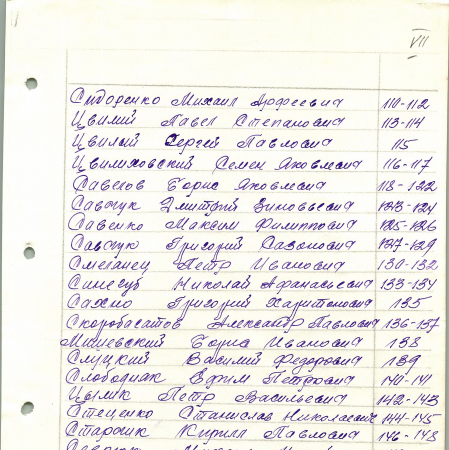 VII
Сидоренко Михаил Ардеевич 110-112
Цвилий Павел Степанович 113-114
Цвилый Сергей Павлович 115
Цвилиховский Семен Яковлевич 116-117
Савегов Борис Яковлевич 118-122
Савчук Дмитрий Зиновьевич 123-124
Савенко Максим Филиппович 125-126
Савчук Григорий Сазонович 127-129
Смеганец Петр Иванович 130-132
Синегуб Николай Афанасьевич 133-134
Сахно Григорий Харитонович 135
Скоробагатов Александр Павлович 136-137
Мишевский Борис Иванович 138
Слуцкий Василий Федорович 139
Слободяк Ефим Петрович 140-141
Цылик Петр Васильевич 142-143
Стеценко Станислав Николаевич 144-145
Старчик Кирилл Павлович 146-148